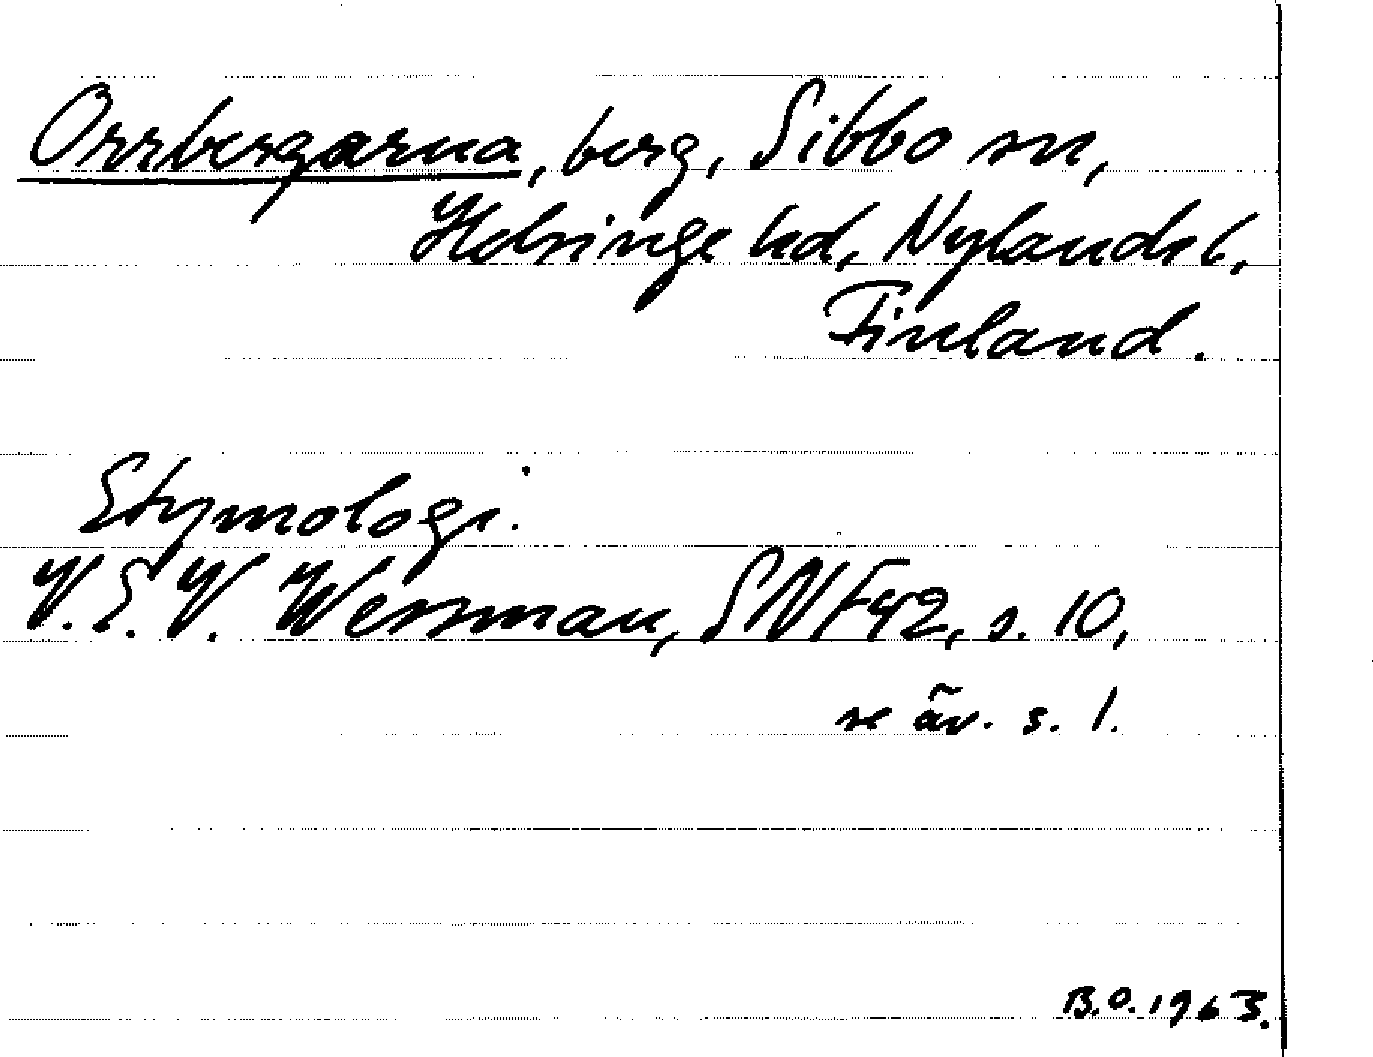 Orrbergarna, berg, Sibbo sn,
Helsinge hd, Nylands l,
Finland.
Etymologi.
V.E.V. Wessman, SNF 42, s. 10,
se äv. s. 1.
B.O. 1963.